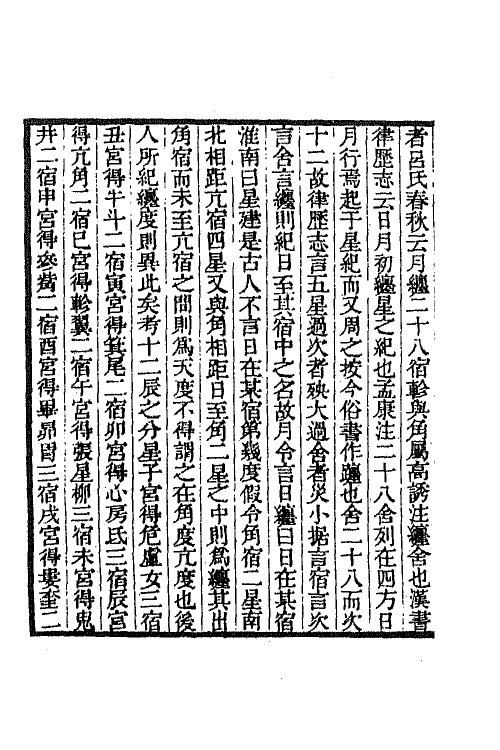 者呂氏春秋云月纏二十八宿軫與角屬高誘注纏舍也漢書
律歷志云日月初纏星之紀也孟康注二十八舍列在四方日
月行焉起于星紀而又周之按今俗書作躔也舍二十八而次
十二故律歷志言五星過次者殃大過舍者災小据言宿言次
言舍言纏則紀日至其宿中之名故月令言日纏曰日在某宿
淮南曰星建是古人不言日在某宿第幾度假令角宿二星南
北相距亢宿四星又與角相距日至角二星之中則爲纏其出
角宿而未至亢宿之間則爲天度不得謂之在角度亢度也後
人所紀纏度則異此矣考十二辰之分星子宮得危虛女三宿
丑宮得牛斗二宿寅宮得箕尾二宿卯宮得心房氐三宿辰宮
得亢角二宿巳宮得軫翼二宿午宮得張星柳三宿未宮得鬼
井二宿申宮得參觜二宿酉宮得畢昴胃三宿戌宮得婁奎二